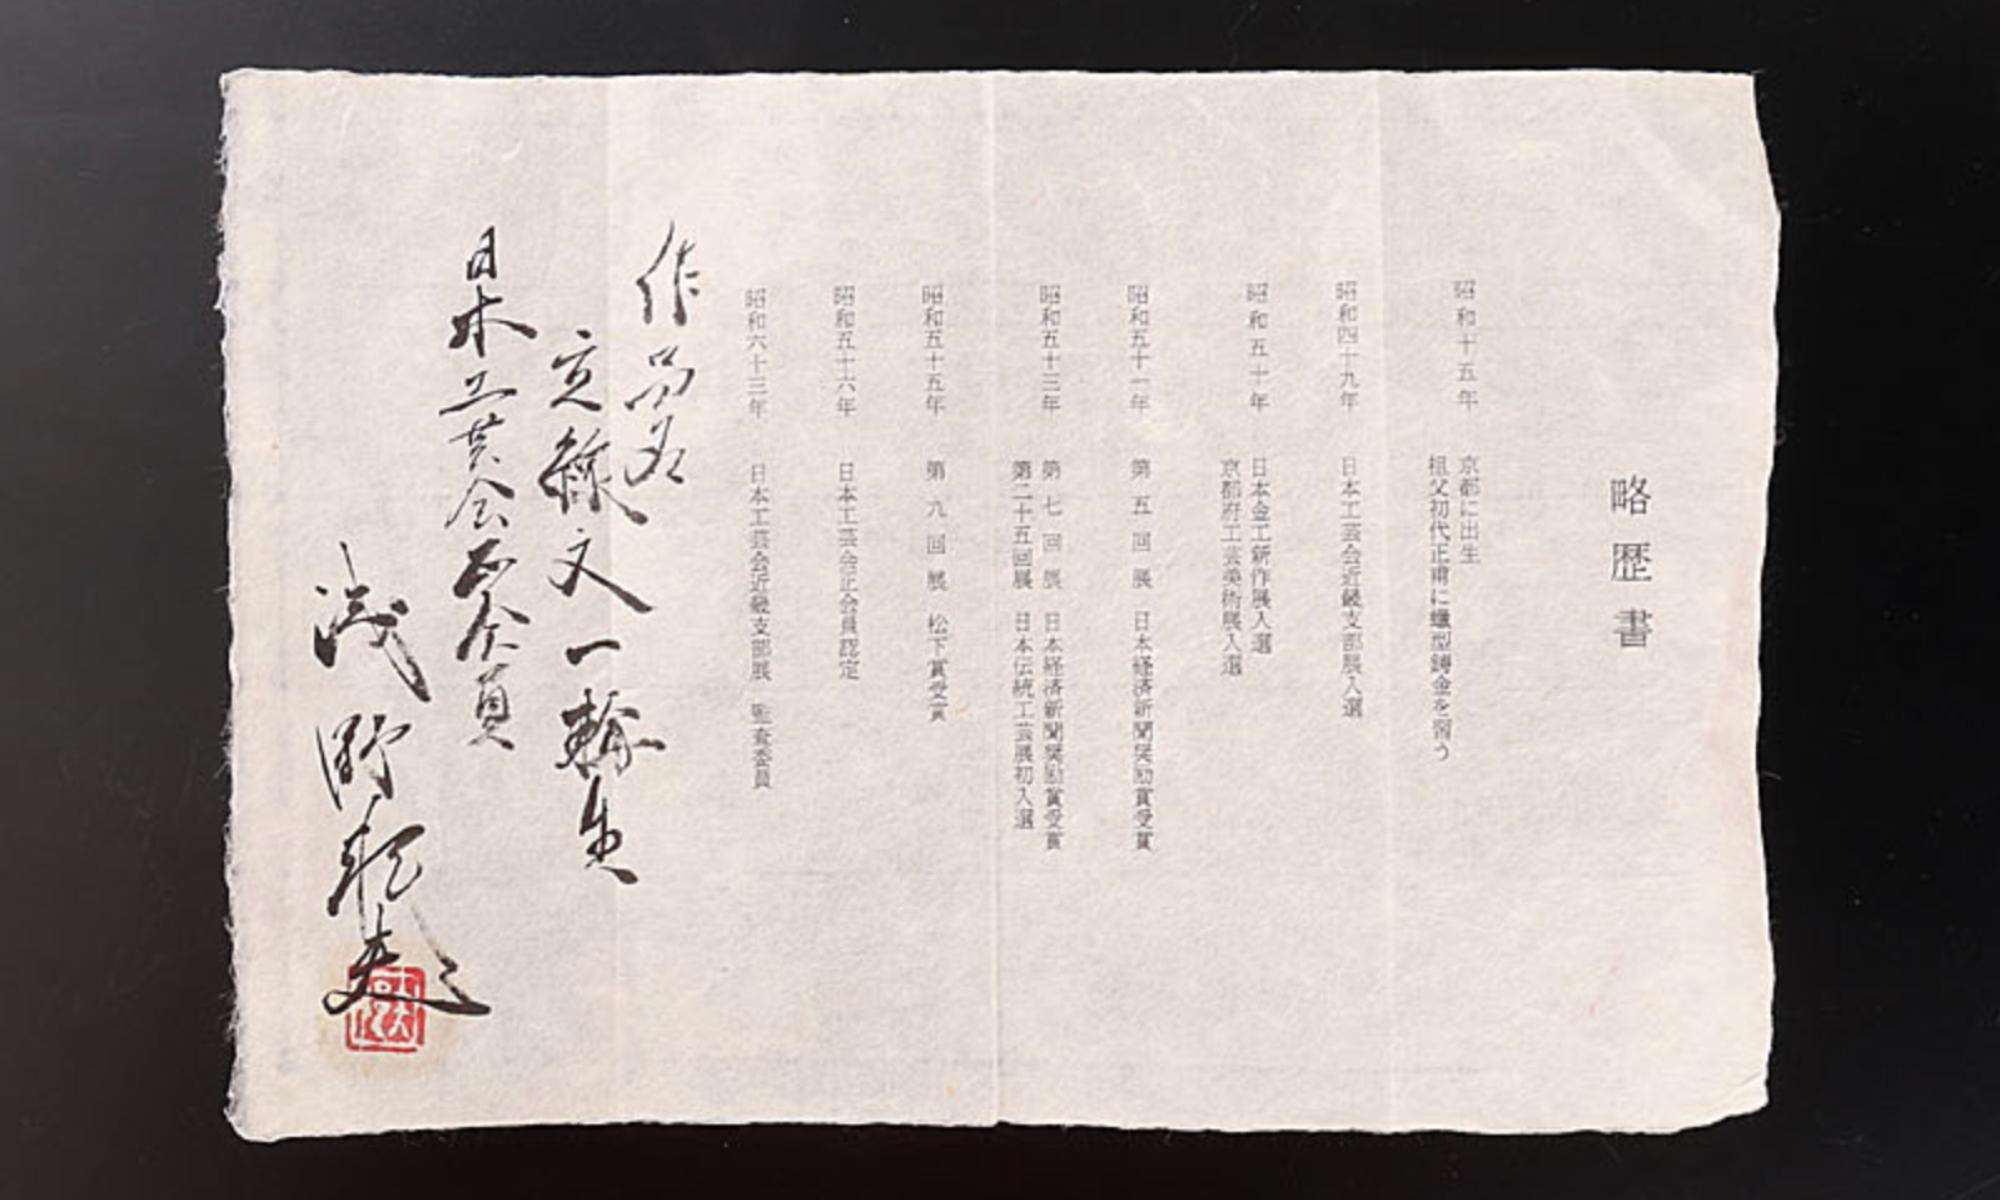 略歴書
昭和十五年 京都に出生
祖父初代正甫に蠟型鋳金を習う
昭和四十九年 日本工芸会近畿支部展入選
昭和五十年 日本金工新作展入選
京都府工芸美術展入選
昭和五十一年 第五回展 日本経済新聞奨励賞受賞
昭和五十三年 第七回展 日本経済新聞奨励賞受賞
第二十五回展 日本伝統工芸展初入選
昭和五十五年 第九回展 松下賞受賞
昭和五十六年 日本工芸会正会員認定
昭和六十三年 日本工芸会近畿支部展 監査委員
作品名
立線文一輪生
日本工芸会正会員
浅野 美